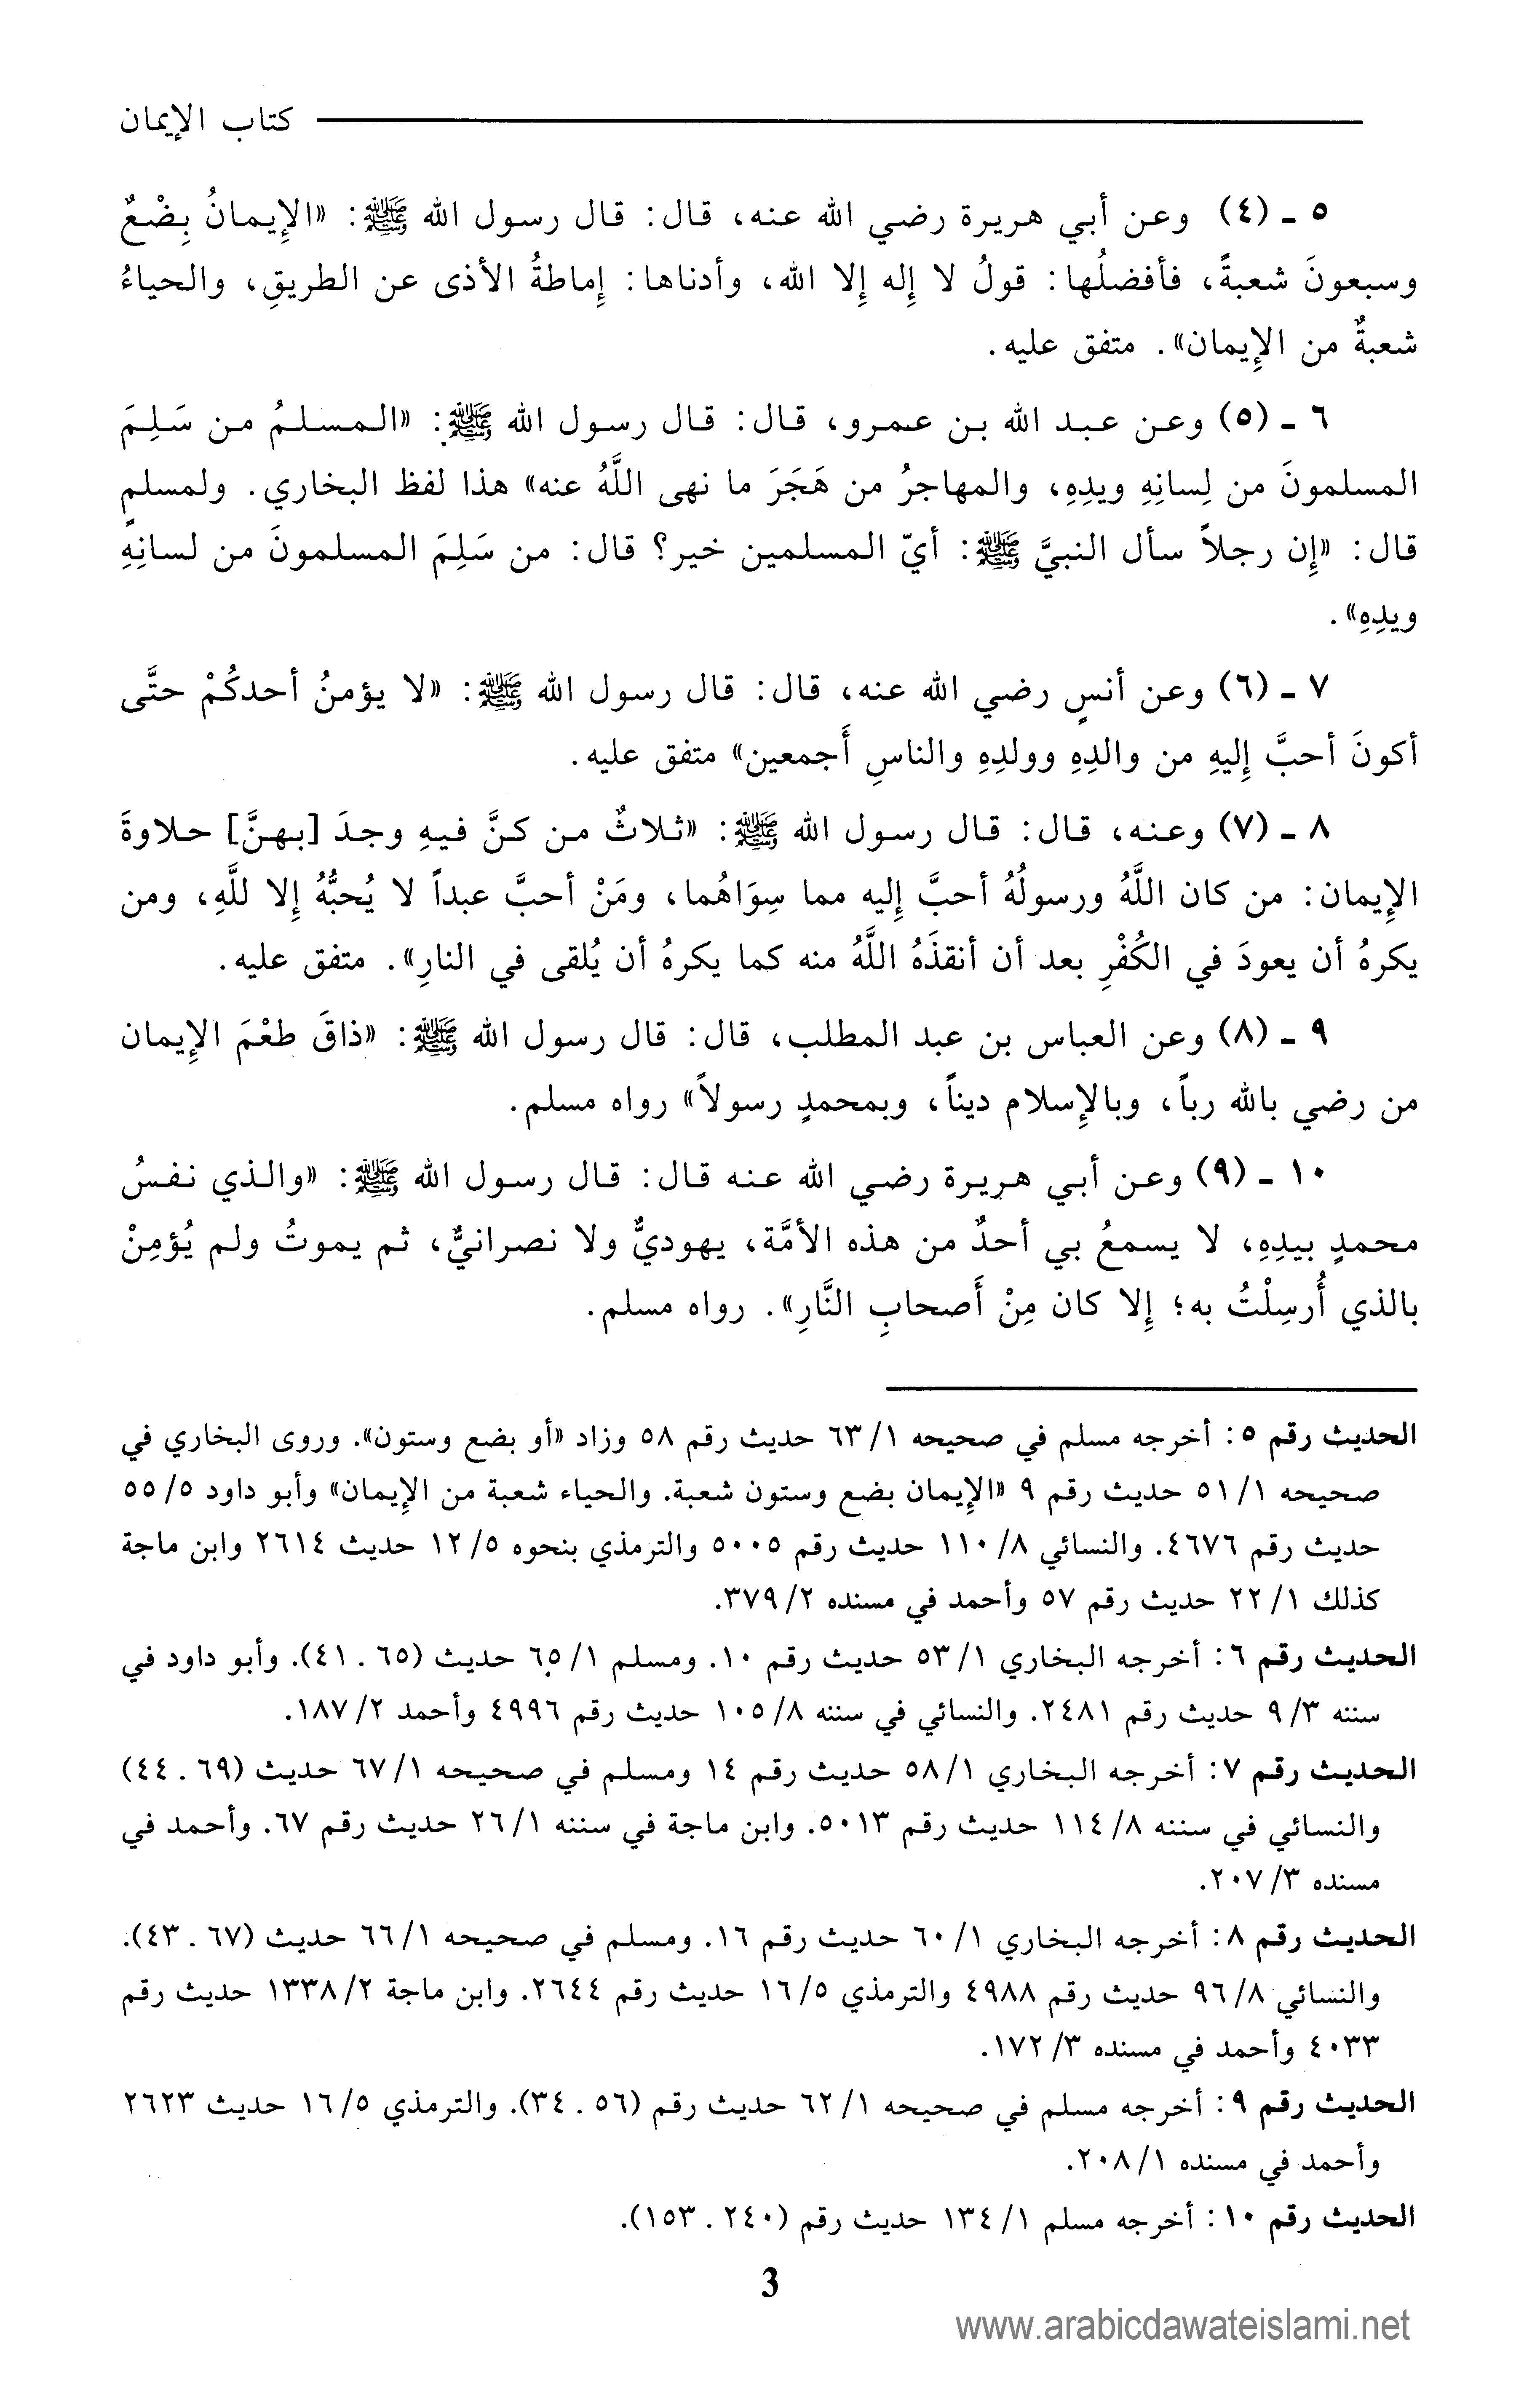 كتاب الإيمان
٥ - (٤) وعن أبي هريرة رضي الله عنه، قال: قال رسول الله ﷺ: «الإِيمانُ بِضْعٌ
وسبعونَ شعبةً، فأفضلُها: قولُ لا إِله إِلا الله، وأدناها: إِماطةُ الأذى عن الطريقِ، والحياءُ
شعبةٌ من الإِيمان». متفق عليه.
٦ - (٥) وعن عبد الله بن عمرو، قال: قال رسول الله ﷺ: «المسلمُ من سَلِمَ
المسلمونَ من لِسانِهِ ويدِهِ، والمهاجرُ من هَجَرَ ما نهى اللَّهُ عنه» هذا لفظ البخاري. ولمسلمٍ
قال: «إِن رجلاً سأل النبيَّ ﷺ: أيّ المسلمين خير؟ قال: من سَلِمَ المسلمونَ من لسانِهِ
ويدِهِ».
٧ - (٦) وعن أنسٍ رضي الله عنه، قال: قال رسول الله ﷺ: «لا يؤمنُ أحدكُمْ حتَّى
أكونَ أحبَّ إِليهِ من والدِهِ وولدِهِ والناسِ أَجمعين» متفق عليه.
٨ - (٧) وعنه، قال: قال رسول الله ﷺ: «ثلاثٌ من كنَّ فيهِ وجدَ [بهنَّ] حلاوةَ
الإِيمان: من كان اللَّهُ ورسولُهُ أحبَّ إِليه مما سِوَاهُما، ومَنْ أحبَّ عبداً لا يُحبُّهُ إِلا للَّهِ، ومن
يكرهُ أن يعودَ في الكُفْرِ بعد أن أنقذَهُ اللَّهُ منه كما يكرهُ أن يُلقى في النارِ». متفق عليه.
٩ - (٨) وعن العباس بن عبد المطلب، قال: قال رسول الله ﷺ: «ذاقَ طعْمَ الإِيمان
من رضي بالله رباً، وبالإِسلام ديناً، وبمحمدٍ رسولاً» رواه مسلم.
١٠ - (٩) وعن أبي هريرة رضي الله عنه قال: قال رسول الله ﷺ: «والذي نفسُ
محمدٍ بيدِهِ، لا يسمعُ بي أحدٌ من هذه الأمَّة، يهوديٌّ ولا نصرانيٌّ، ثم يموتُ ولم يُؤمِنْ
بالذي أُرسِلْتُ به؛ إِلا كان مِنْ أَصحابِ النَّارِ». رواه مسلم.
الحديث رقم ٥: أخرجه مسلم في صحيحه ١/ ٦٣ حديث رقم ٥٨ وزاد «أو بضع وستون». وروى البخاري في
صحيحه ١/ ٥١ حديث رقم ٩ «الإِيمان بضع وستون شعبة. والحياء شعبة من الإِيمان» وأبو داود ٥/ ٥٥
حديث رقم ٤٦٧٦. والنسائي ٨/ ١١٠ حديث رقم ٥٠٠٥ والترمذي بنحوه ٥/ ١٢ حديث ٢٦١٤ وابن ماجة
كذلك ١/ ٢٢ حديث رقم ٥٧ وأحمد في مسنده ٢/ ٣٧٩.
الحديث رقم ٦: أخرجه البخاري ١/ ٥٣ حديث رقم ١٠. ومسلم ١/ ٦٥ حديث (٦٥ . ٤١). وأبو داود في
سننه ٣/ ٩ حديث رقم ٢٤٨١. والنسائي في سننه ٨/ ١٠٥ حديث رقم ٤٩٩٦ وأحمد ٢/ ١٨٧.
الحديث رقم ٧: أخرجه البخاري ١/ ٥٨ حديث رقم ١٤ ومسلم في صحيحه ١/ ٦٧ حديث (٦٩ . ٤٤)
والنسائي في سننه ٨/ ١١٤ حديث رقم ٥٠١٣. وابن ماجة في سننه ١/ ٢٦ حديث رقم ٦٧. وأحمد في
مسنده ٣/ ٢٠٧.
الحديث رقم ٨: أخرجه البخاري ١/ ٦٠ حديث رقم ١٦. ومسلم في صحيحه ١/ ٦٦ حديث (٦٧ . ٤٣).
والنسائي ٨/ ٩٦ حديث رقم ٤٩٨٨ والترمذي ٥/ ١٦ حديث رقم ٢٦٤٤. وابن ماجة ٢/ ١٣٣٨ حديث رقم
٤٠٣٣ وأحمد في مسنده ٣/ ١٧٢.
الحديث رقم ٩: أخرجه مسلم في صحيحه ١/ ٦٢ حديث رقم (٥٦ . ٣٤). والترمذي ٥/ ١٦ حديث ٢٦٢٣
وأحمد في مسنده ١/ ٢٠٨.
الحديث رقم ١٠: أخرجه مسلم ١/ ١٣٤ حديث رقم (٢٤٠ . ١٥٣).
3
www.arabicdawateislami.net